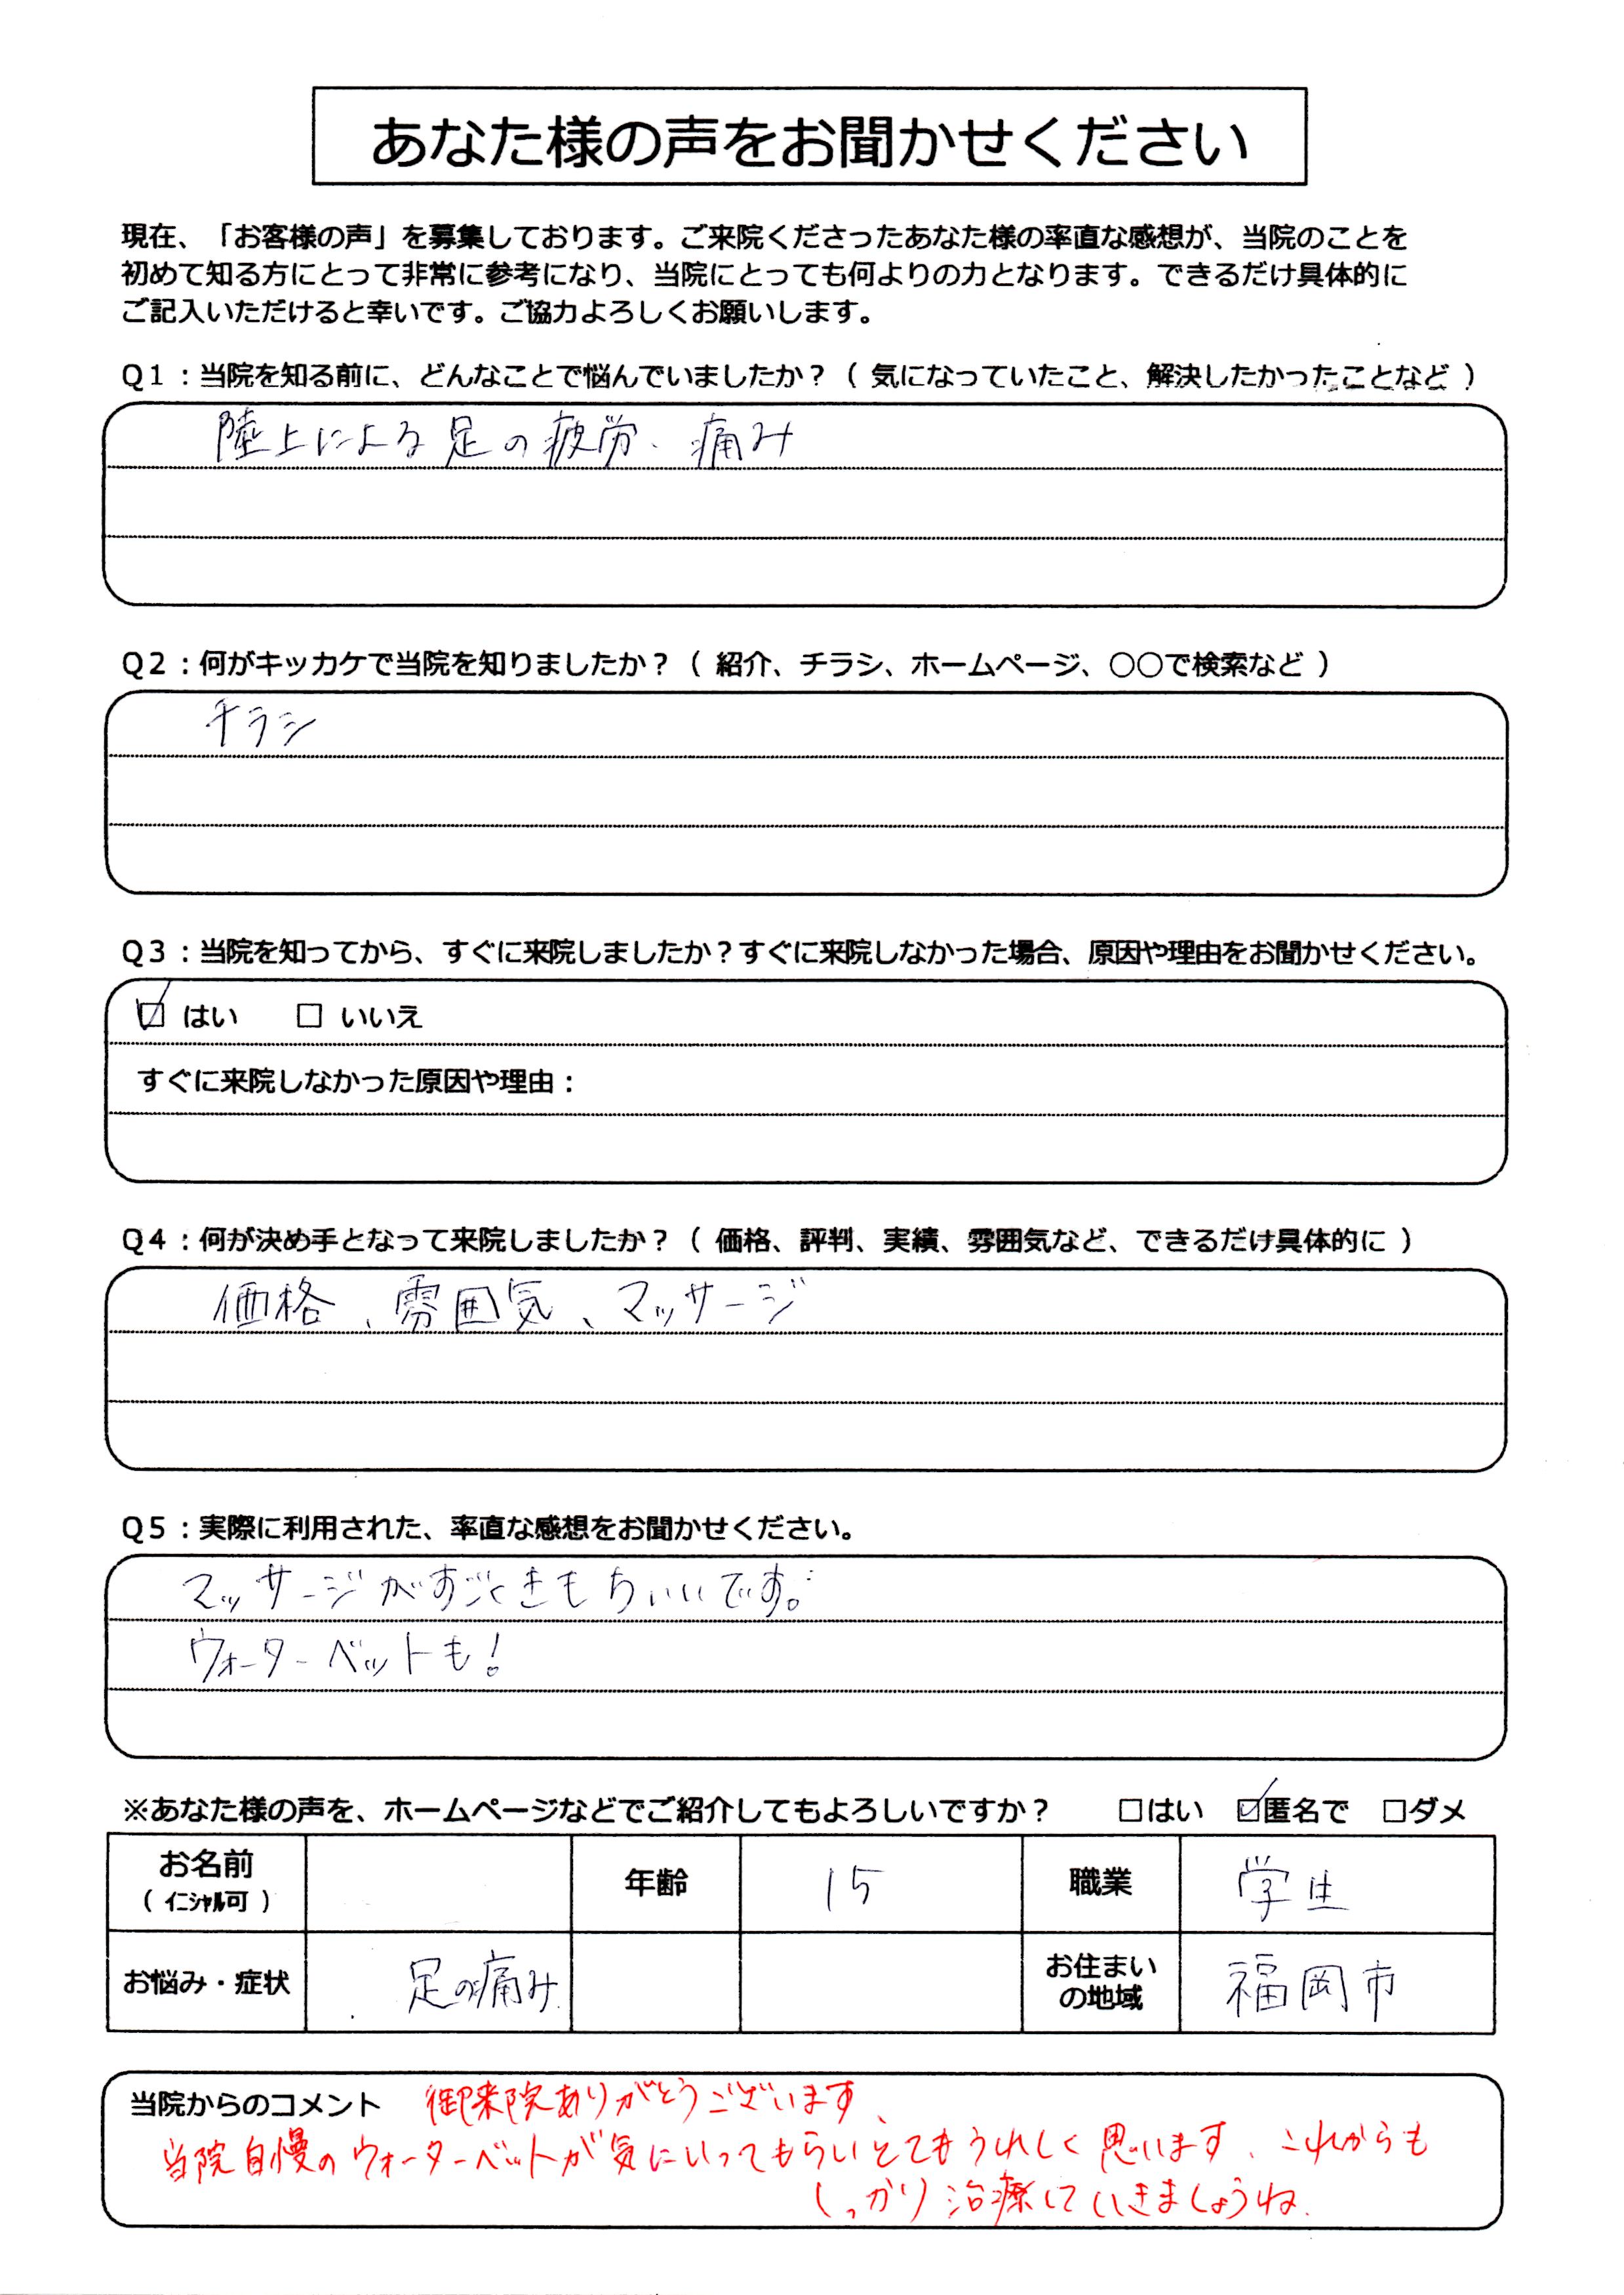 あなた様の声をお聞かせください
現在、「お客様の声」を募集しております。ご来院くださったあなた様の率直な感想が、当院のことを
初めて知る方にとって非常に参考になり、当院にとっても何よりの力となります。できるだけ具体的に
ご記入いただけると幸いです。ご協力よろしくお願いします。
Q1：当院を知る前に、どんなことで悩んでいましたか？（ 気になっていたこと、解決したかったことなど ）
陸上による足の疲労、痛み
Q2：何がキッカケで当院を知りましたか？（ 紹介、チラシ、ホームページ、○○で検索など ）
チラシ
Q3：当院を知ってから、すぐに来院しましたか？すぐに来院しなかった場合、原因や理由をお聞かせください。
☑ はい　□ いいえ
すぐに来院しなかった原因や理由：
Q4：何が決め手となって来院しましたか？（ 価格、評判、実績、雰囲気など、できるだけ具体的に ）
価格、雰囲気、マッサージ
Q5：実際に利用された、率直な感想をお聞かせください。
マッサージがすごくきもちいいです。
ウォーターベットも！
※あなた様の声を、ホームページなどでご紹介してもよろしいですか？　□はい　☑匿名で　□ダメ
お名前
（ イニシャル可 ）
年齢　15　職業　学生
お悩み・症状　足の痛み　お住まいの地域　福岡市
当院からのコメント　御来院ありがとうございます、
当院自慢のウォーターベットが気にいってもらいとてもうれしく思います、これからも
しっかり治療していきましょうね、